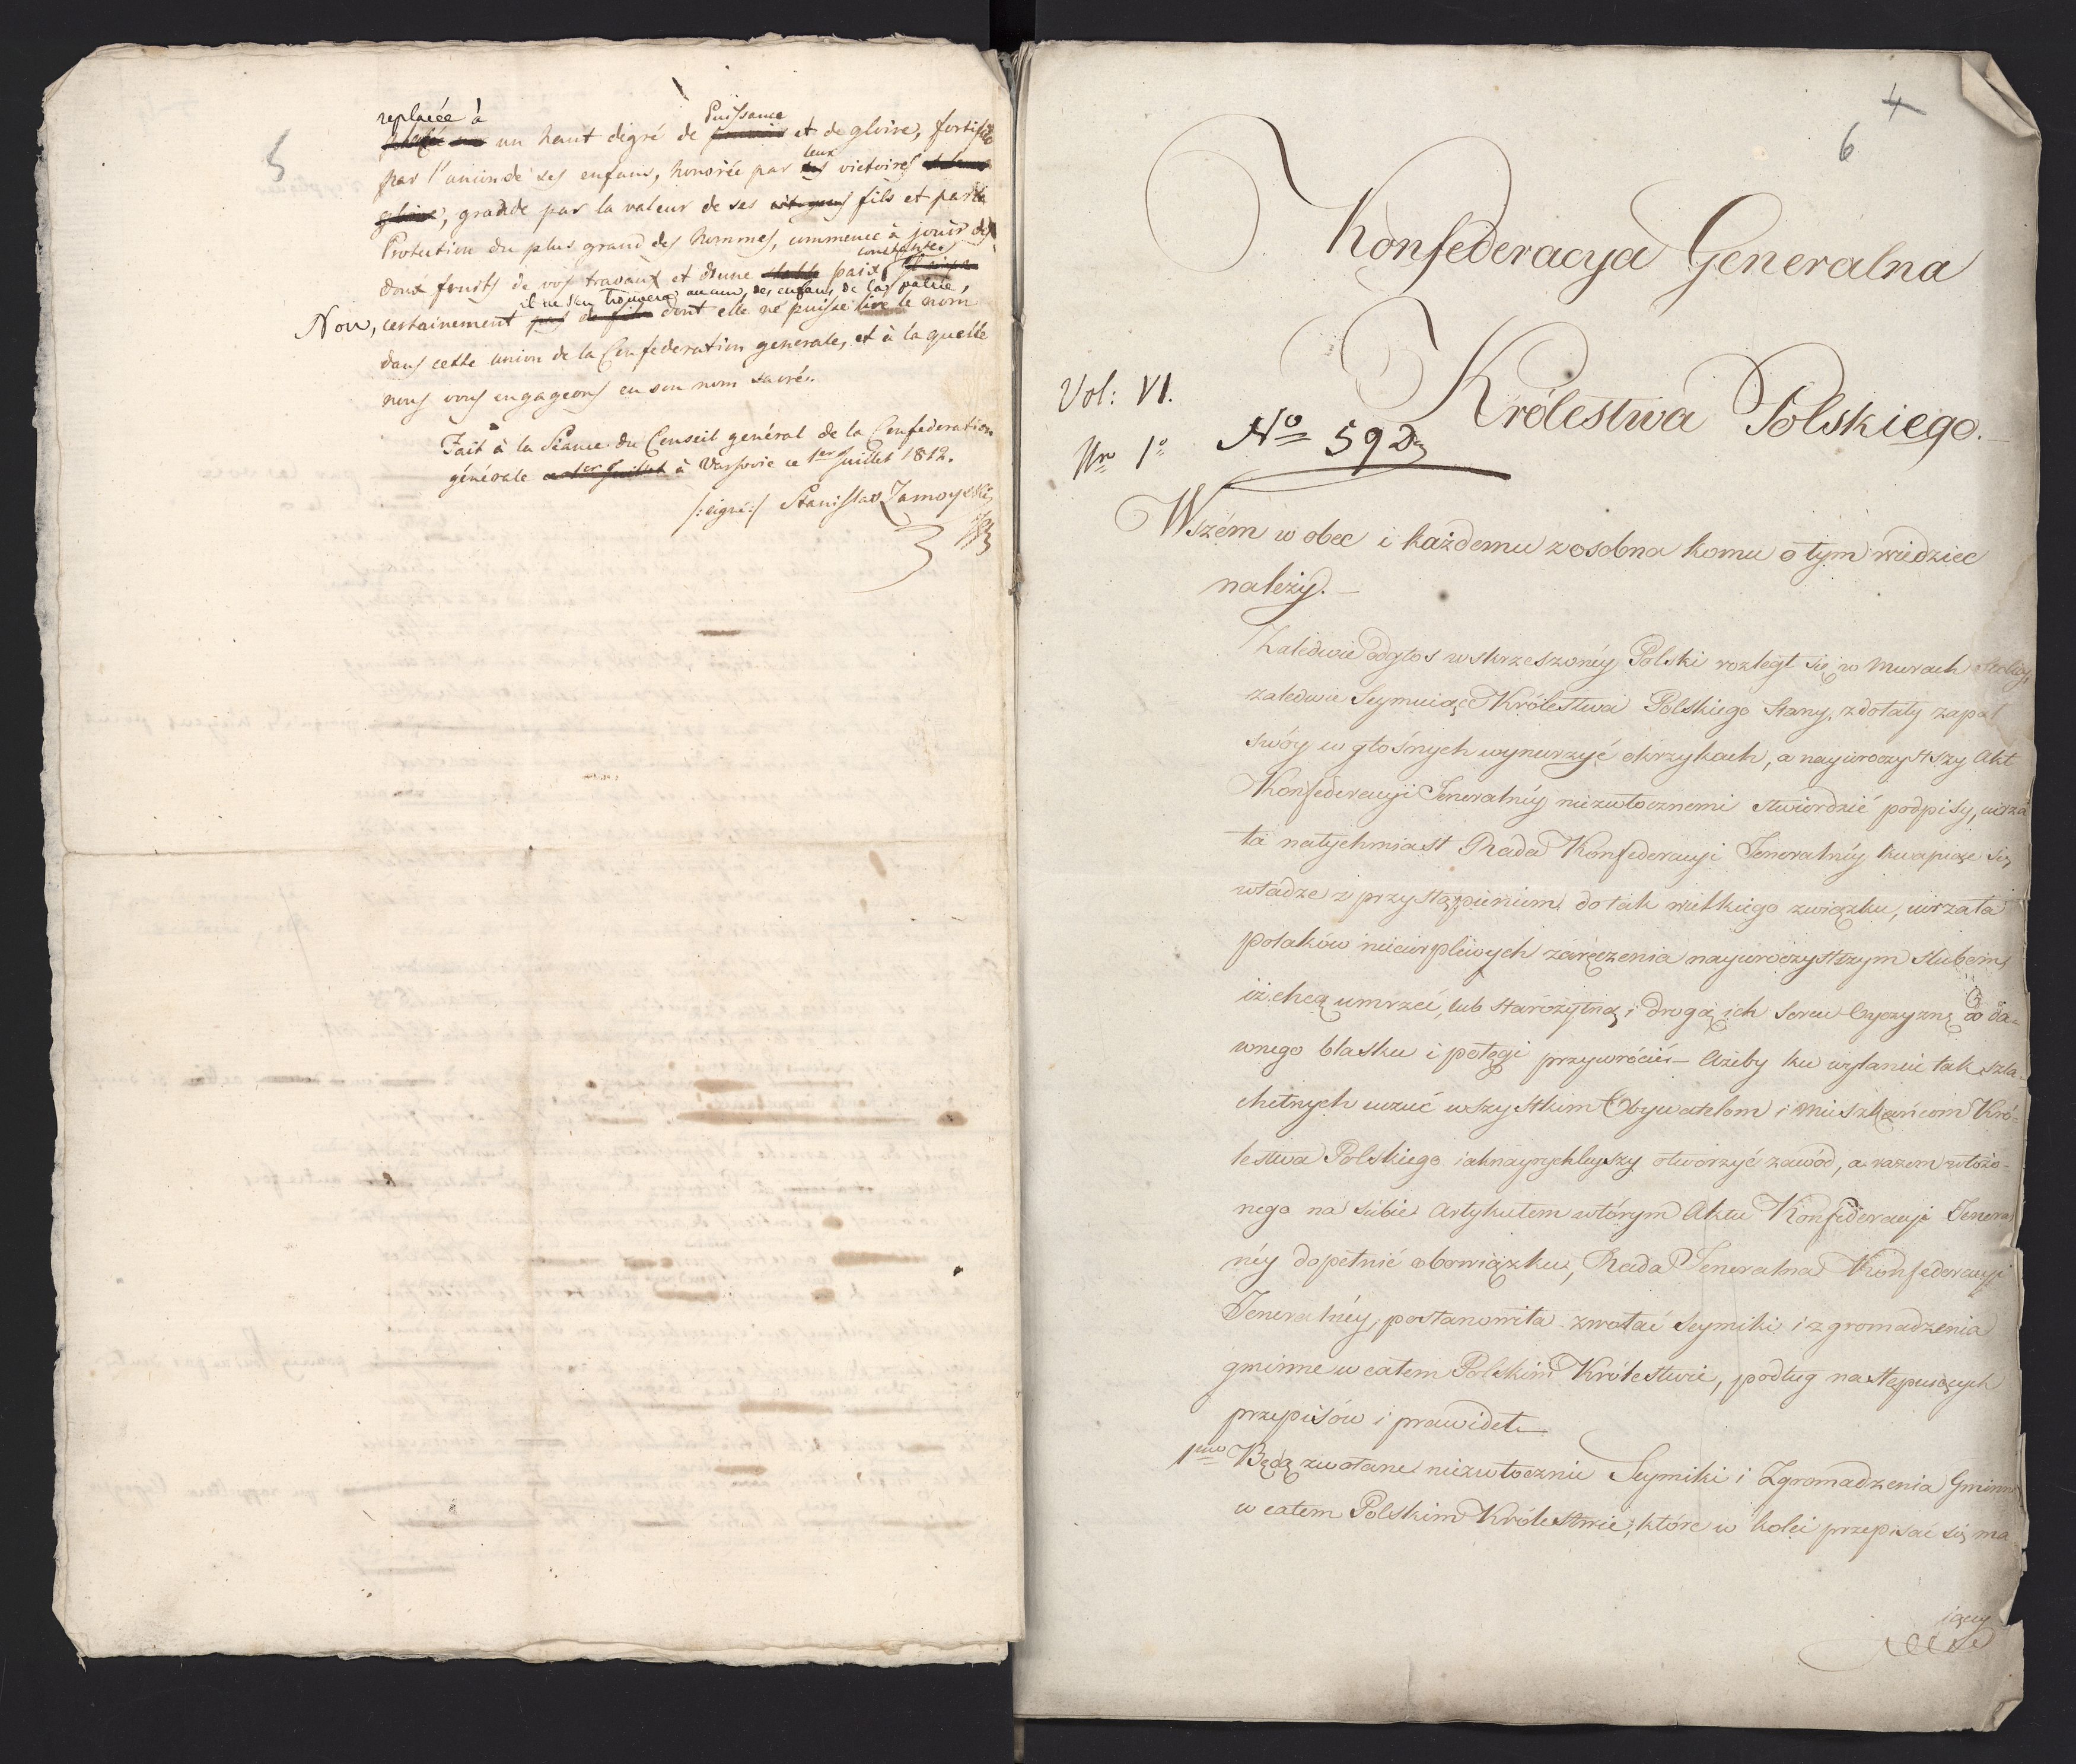 5
replacée à
un haut dégré de Puissance et de gloire, fortifiée
par l'union de ses enfans, honorée par leurs victoires
gradide par la valeur de ses fils et par la
Protection du plus grand des hommes, commence à jouir des
doux fruits de vos travaux et d'une paix constante,
Non, certainement il ne s'en trouvera aucun, des enfans de la patrie, dont elle ne puisse lire le nom
dans cette union de la Confederation generale, et à la quelle
nous vous engageons en son nom sacré.
Fait à la Séance du Conseil général de la Confederation
générale à Varsovie ce 1er Juillet 1812.
/:signé:/ Stanislas Zamoyski
4
6
Konfederacya Generalna
Królestwa Polskiego.
Vol: VI.
Nro 1o
No 592
Wszém w obec i każdemu z osobna komu o tym wiedziec
należy.—
Zaledwie odgłos wskrzeszonéy Polski rozległ się w murach Stolicy,
zaledwie Seymuiące Królestwa Polskiego Stany, zdołały zapał
swóy w głośnych wynurzyć okrzykach, a nayuroczystszy Akt
Konfederacyi Jeneralnéy niezwłocznemi stwierdzić podpisy, uirza
ła natychmiast Rada Konfederacyi Jeneralnéy kwapiące się
władze z przystąpieniem do tak wielkiego związku, uirzała
polaków niecierpliwych zaręczenia nayuroczystszym ślubem,
iż chcą umrzeć, lub starożytną i drogą ich sercu Oyczyznę do da-
wnego blasku i potęgi przywrócić.— Ażeby ku wylaniu tak szla-
chetnych uczuć wszystkim Obywatelom i Mieszkańcom Kró-
lestwa Polskiego iaknayrychleyszy otworzyć zawód, a razem włożo-
nego na siebie Artykułem wtórym Aktu Konfederacyi Jeneral
néy dopełnić obowiązku, Rada Jeneralna Konfederacyi
Jeneralnéy, postanowiła zwołać Seymiki i zgromadzenia
gminne w całem Polskim Królestwie, podług następuiących
przepisów i prawideł.—
1mo Będą zwołane niezwłocznie Seymiki i Zgromadzenia Gminne
w całem Polskim Królestwie, które w kolei przepisać się ma
iącey